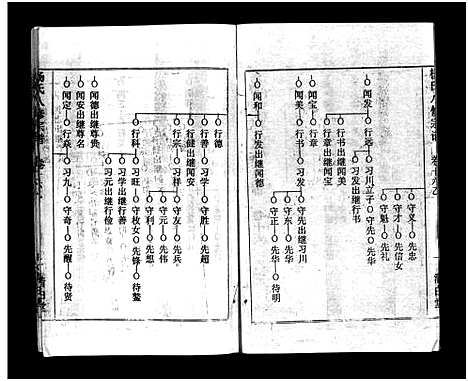 杨氏八修宗谱
闻发
行远
习川立子
守义
先忠
守才
先信女
守子
先礼
守魁
习发出继行书
守先
先华
行书出继闻美
行章出继闻宝
闻宝
行章
闻美
行书
习发
守先出继习川
守东
先华
守正
先华
待明
闻和
行发出继闻德
行德
行善
习学
守胜
先超
行健出继闻安
行宗
习祥
守友
先兵
守元
先伟
守利
先想
行科
习旺
守枚女
先锋
待鳌
习学出继行善
习元出继行俭
闻德出继尊贵
闻安出继尊名
闻定
行森
习九
守奇
先醒
待贤
清白堂